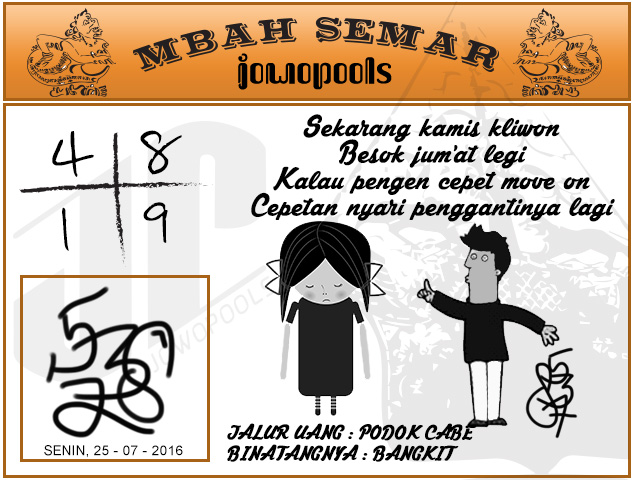 MBAH SEMAR
jowopools
4 8
1 9
Sekarang kamis kliwon
Besok jum'at legi
Kalau pengen cepet move on
Cepetan nyari penggantinya lagi
SENIN, 25 - 07 - 2016
JALUR UANG : PODOK CABE
BINATANGNYA : BANGKIT
JOWOPOOLS